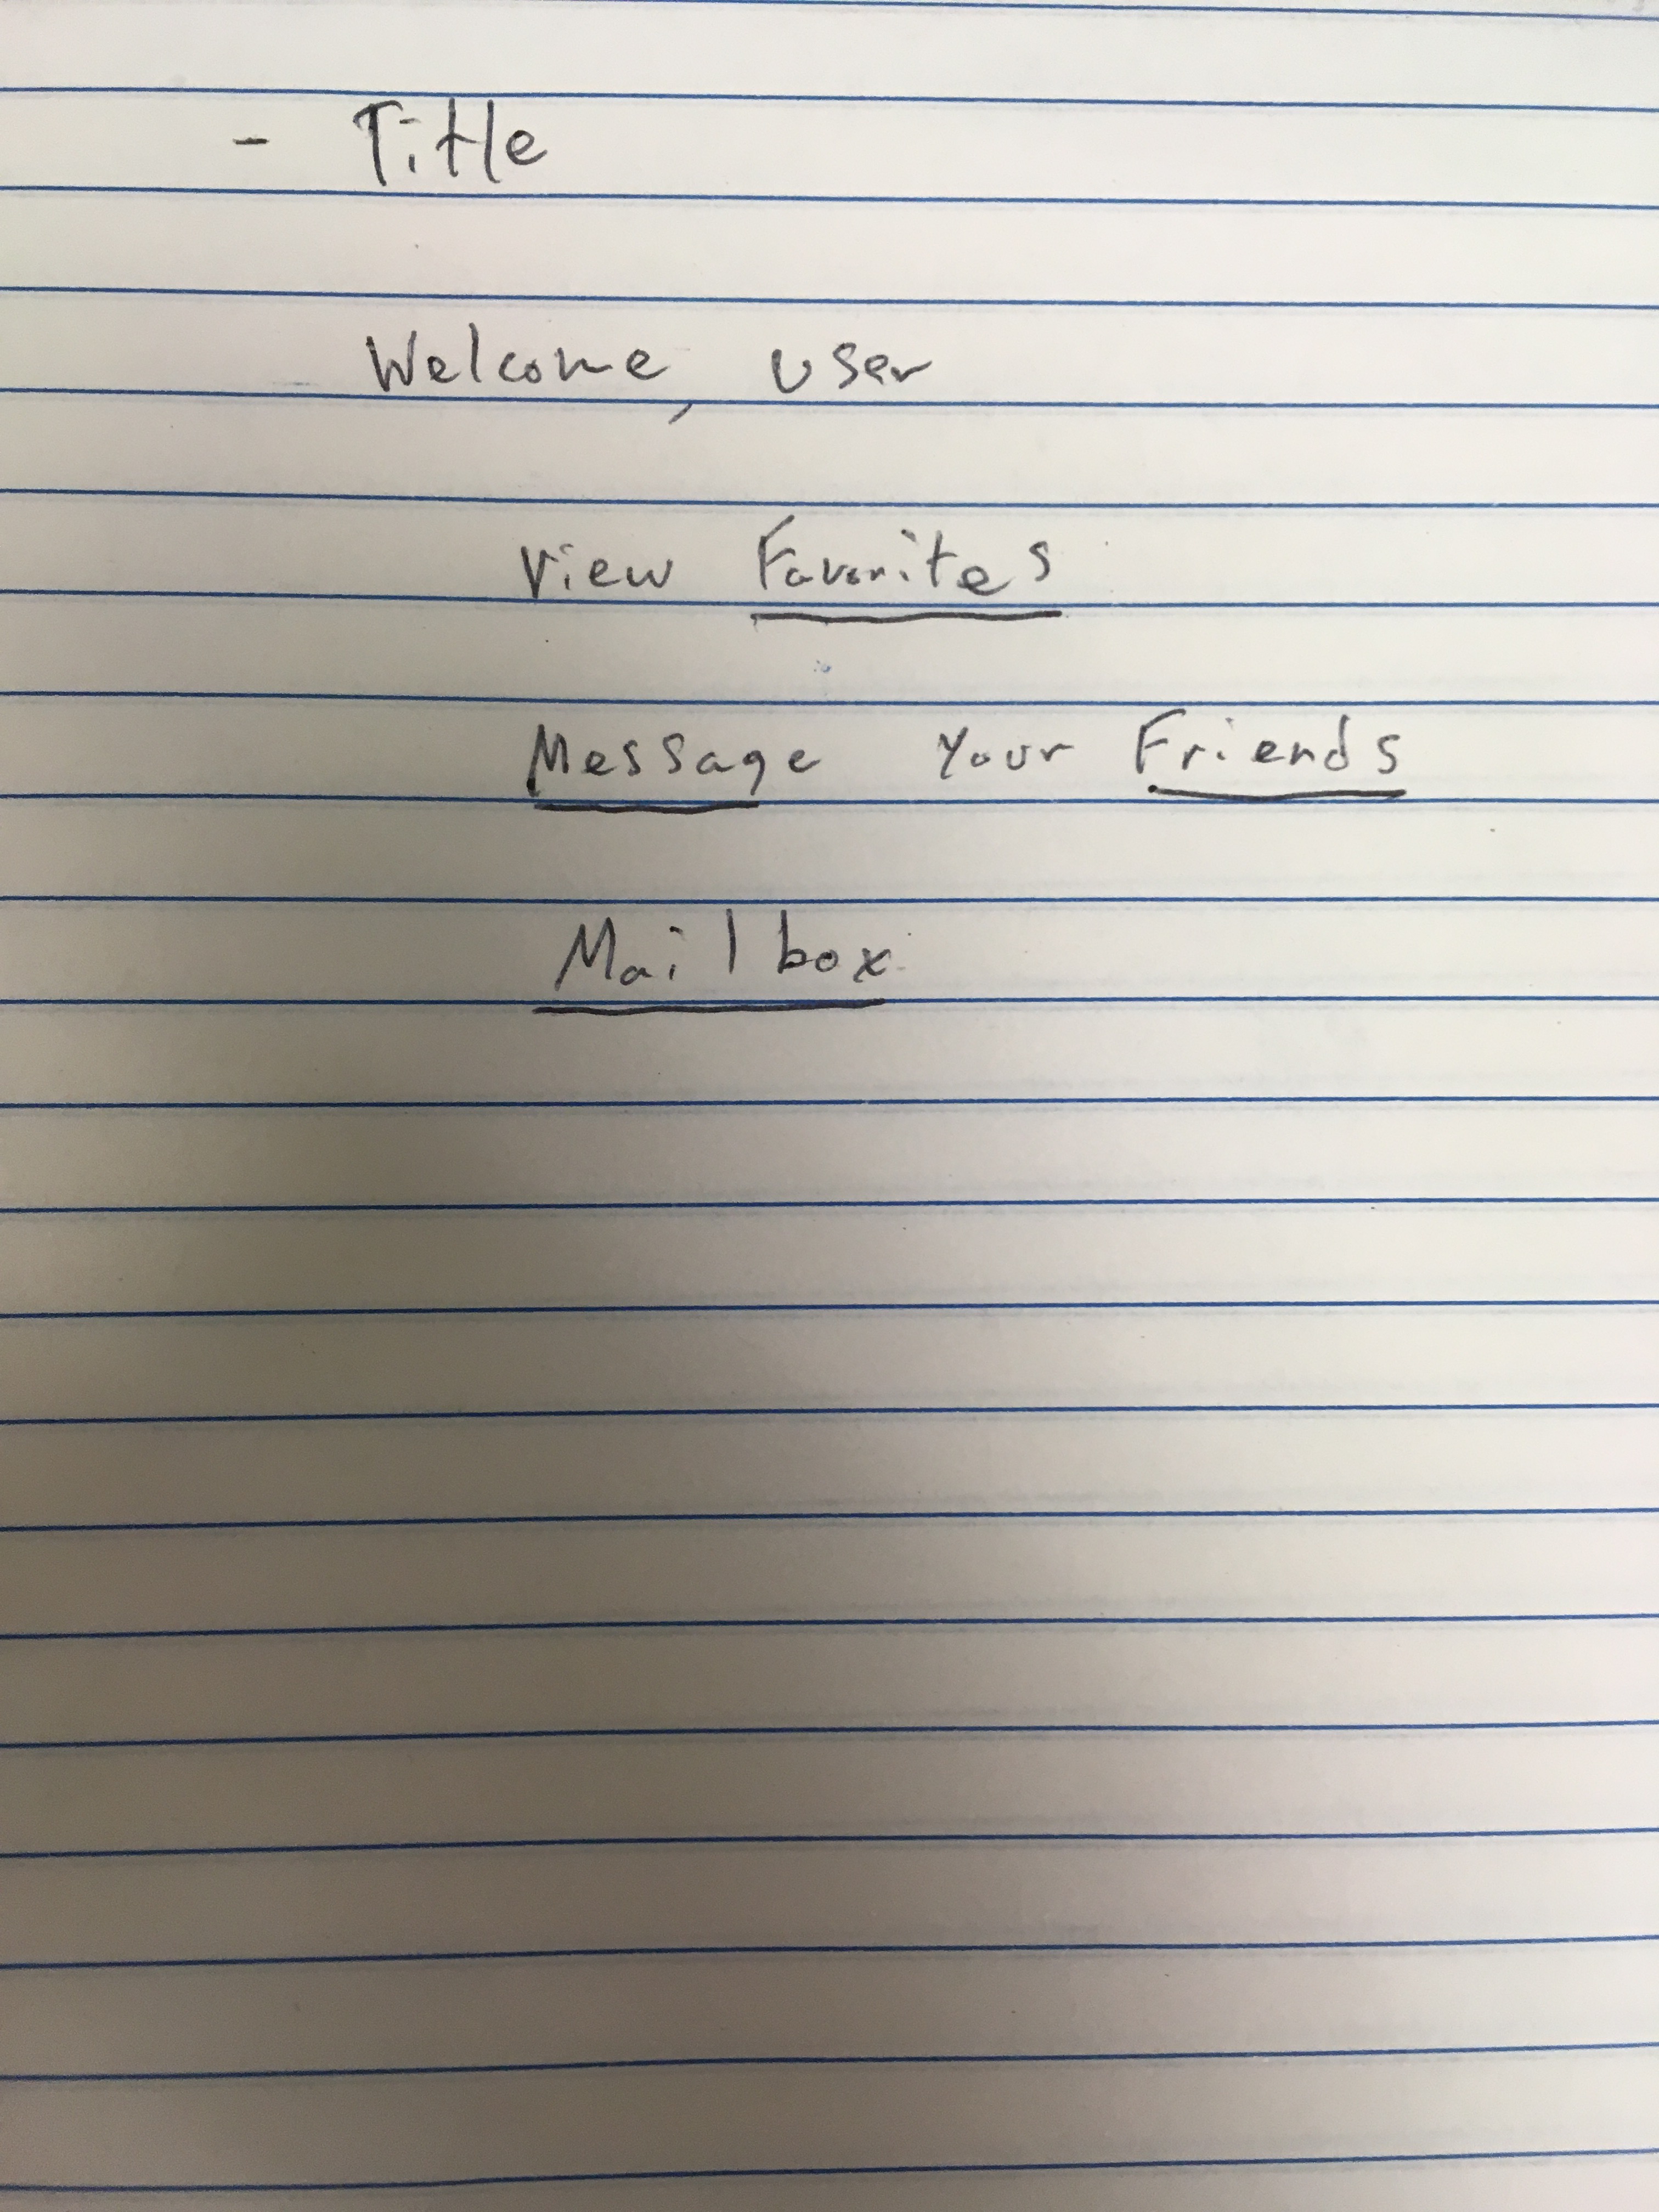 - Title
Welcome, user
View Favorites
Message Your Friends
Mailbox